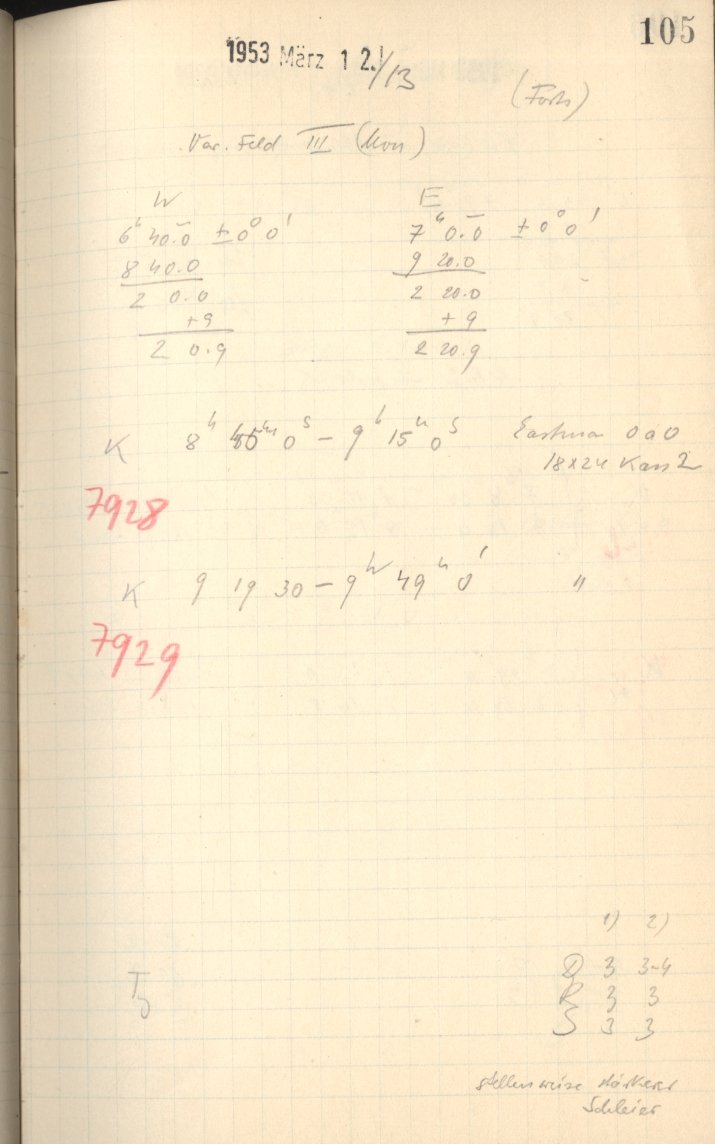 105
1953 März 12./13
(Forts)
Var. Feld III (Mon)
W E
6h 40.0 ± 0° 0' 7h 0.0 ± 0° 0'
8 40.0 9 20.0
2 0.0 2 20.0
+9 +9
2 0.9 2 20.9
K 8h 45m 0s – 9h 15m 0s Eastman OaO
18x24 Kass 2
7928
K 9 19 30 – 9h 49m 0s "
7929
1) 2)
D 3 3-4
R 3 3
S 3 3
stellenweise stärkerer
Schleier